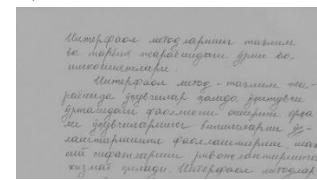 Интерфаол методларнинг таълим
ва тарбия жараёнидаги ўрни ва
имкониятлари.
Интерфаол метод - таълим жа-
раёнида ўқувчилар ҳамда ўқитувчи
ўртасидаги фаолликни ошириб орқа
ли ўқувчиларнинг билимларни ўз-
лаштиришини фаоллаштириш, шах
сий сифатларини ривожлантиришга
хизмат қилади. Интерфаол методлар